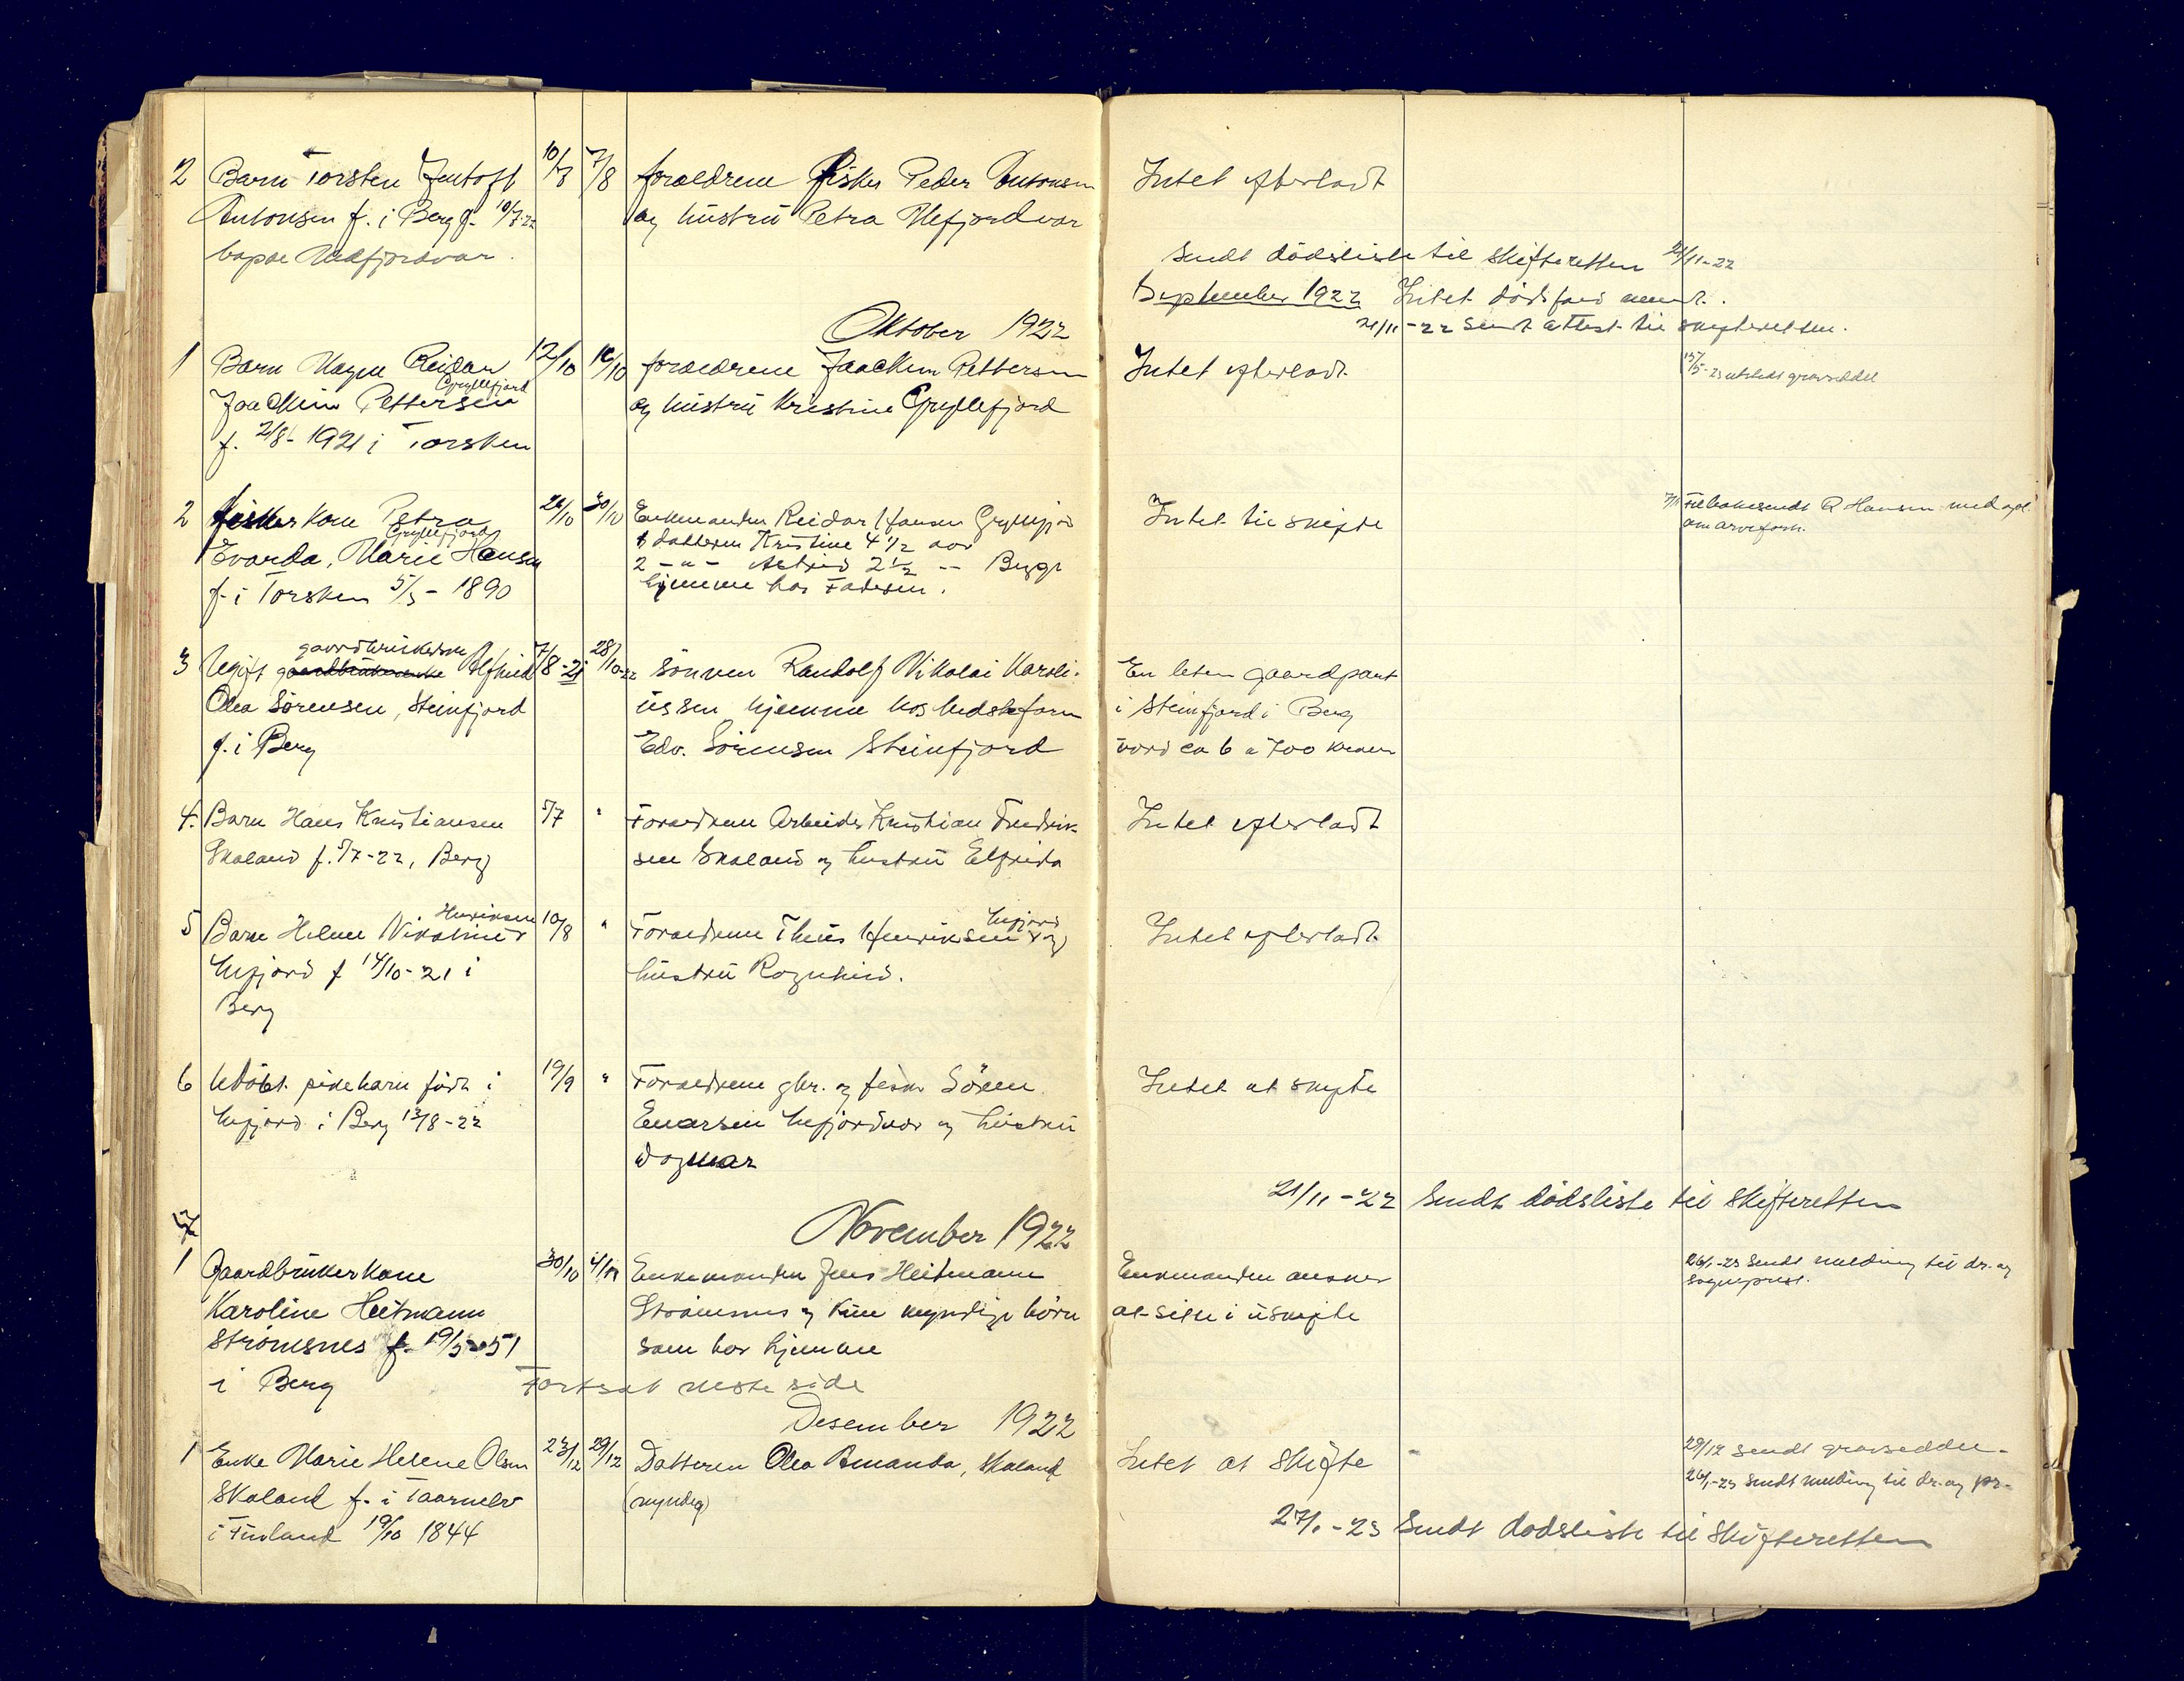 2 Barn Torsten Jentoft 10/7 7/8 forældrene fisker Peder Antonsen Intet efterladt
Antonsen f. i Berg f. 10/7-22 og hustru Petra Mefjordvær
Mefjordvær.
Sendt dödsliste til skifteretten 21/11-22
September 1922 Intet dödsfald meldt.
Oktober 1922
21/11-22 sendt attest til skifteretten.
1 Barn Magne Reidar 12/10 16/10 forældrene Joachim Pettersen Intet efterladt 15/5-23 utstedt gravseddel
Gryllefjord
Joachim Pettersen og hustru Kristine Gryllefjord
f. 2/8-1921 i Torsken
2 fiskerkone Petra 26/10 30/10 Enkemanden Reidar Hansen Gryllefjord Intet til skifte 7/11 Tilbakesendt R Hansen med opl.
Gryllefjord
Evarda, Marie Hansen 1 datteren Kristine 4 1/2 aar om arveforh.
2 -"- Astrid 2 1/2 -- Begge
f. i Torsken 5/5-1890 hjemme hos Faderen.
gaardbrukerske
3 Ugift gaardbrukerenke Alfhild 7/8-21 28/10-22 sönnen Randolf Nikolai Karoli- En liten gaardpart
Olea Sörensen, Steinfjord ussen hjemme hos bedstefaren i Steinfjord i Berg
f. i Berg Edv. Sörensen Steinfjord værd ca 6 a 700 kroner
4. Barn Hans Kristiansen 5/7 " Forældrene Arbeider Kristian Fredrik- Intet efterladt
Skaland f. 5/7-22, Berg sen Skaland og hustru Elfrida
Henriksen Mefjord
5 Barn Helene Nikoline 10/8 " Forældrene Theis Henriksen og Intet efterladt
Mefjord f 14/10-21 i hustru Ragnhild.
Berg
6 Udöbt pikebarn födt i 19/9 " Forældrene gbr. og fisker Sören Intet at skifte
Mefjord i Berg 13/8-22 Enarsen Mefjordvær og hustru
Dagmar
21/11-22 Sendt dödsliste til Skifteretten
November 1922
1 Gaardbrukerkone 30/10 Enkemanden Jens Heitmann Enkemanden ønsker 26/1-23 Sendt melding til dr. og
sogneprest.
Karoline Heitmann Strömsnes og fem myndige börn at sitte i uskifte
Strömsnes f. 19/5-51 som bor hjemme
i Berg Fortsat neste side
Desember 1922
1 Enke Marie Helene Olsen 23/12 29/12 Datteren Olea Amanda, Skaland Intet at Skifte 29/12 sendt gravseddel.
Skaland f. i Taarnelv (myndig) 26/1-23 Sendt melding til dr. og pr.
i Finland 19/10 1844 27/1-23 Sendt dodsliste til Skifteretten